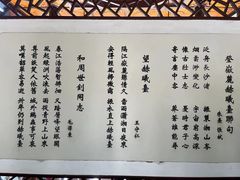 登嶽麓赫曦臺聯句
朱熹 張栻
泛舟長沙渚 振策湘山岑
煙雲渺變化 宇宙窮高深
懷古壯士志 憂時君子心
寄言塵中客 莽蒼誰能尋
望赫曦臺
王守仁
隔江嶽麓懸情久 雷雨瀟湘日夜來
安得輕風掃微靄 振衣直上赫曦臺
和周世釗同志
毛澤東
春江浩蕩暫徘徊 又踏層峰望眼開
風起綠洲吹浪去 雨從青野上山來
尊前談笑人依舊 域外雞蟲事可哀
莫嘆韶華容易逝 卅年仍到赫曦臺